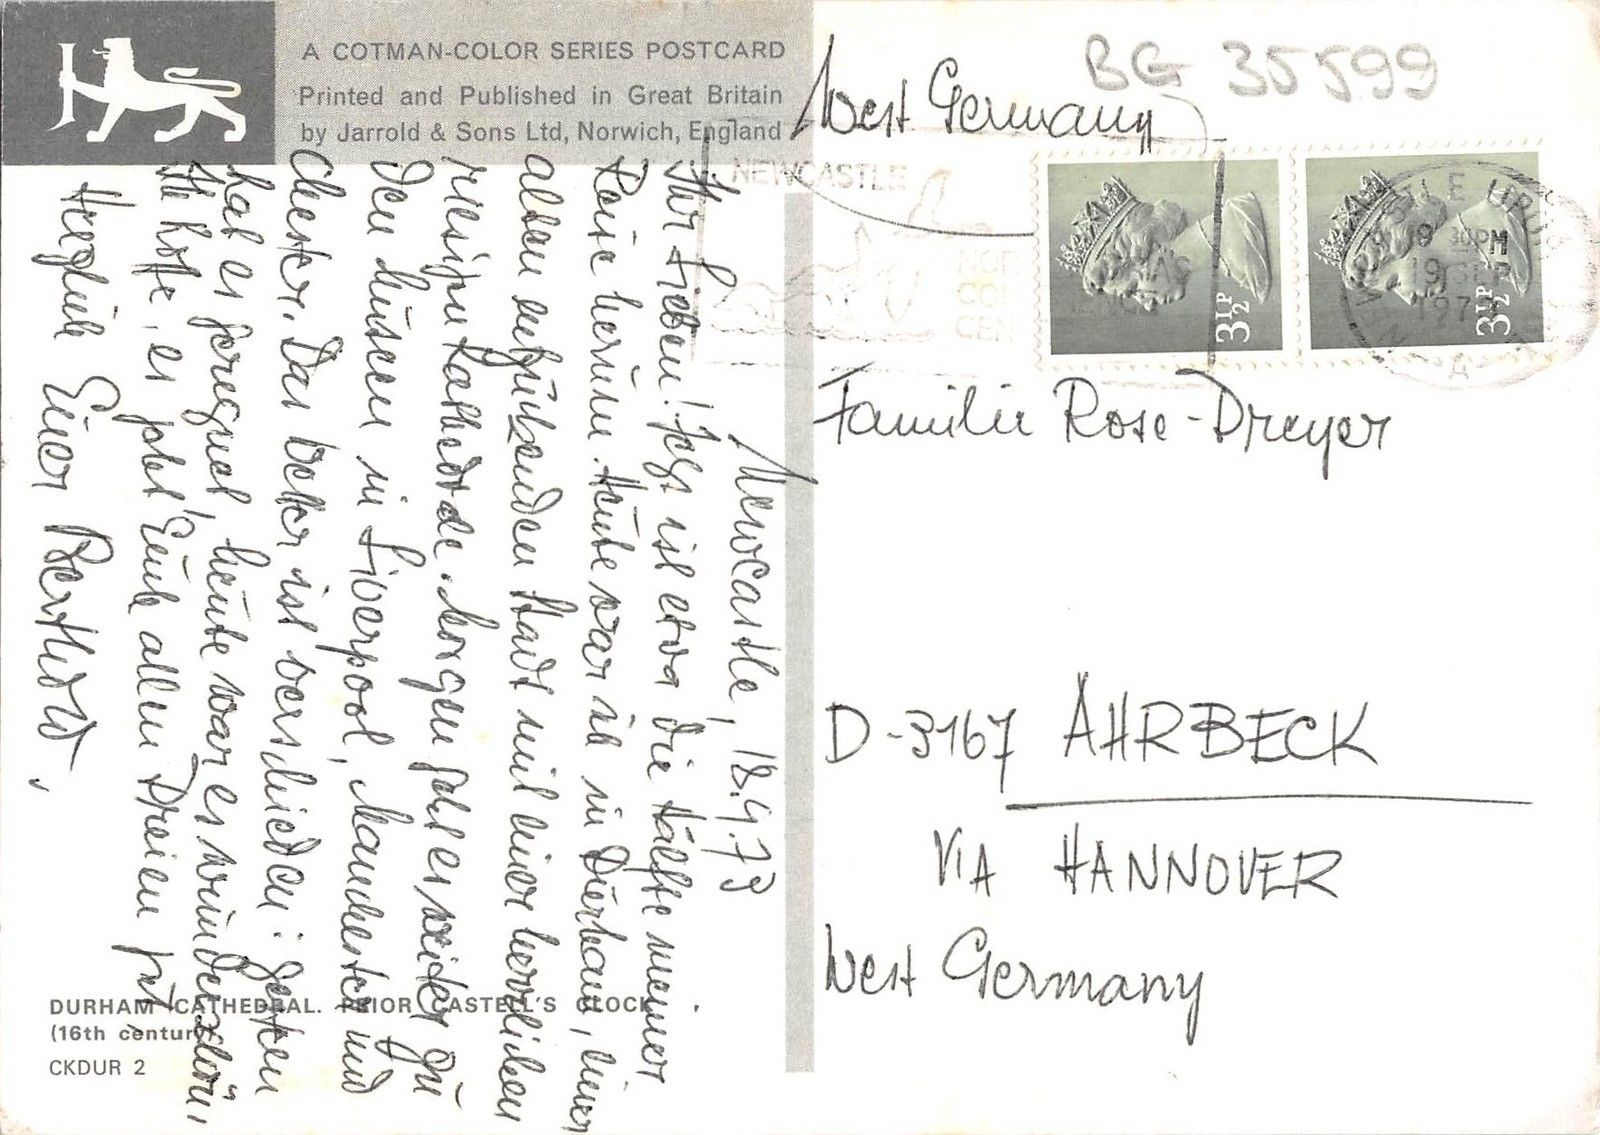 A COTMAN-COLOR SERIES POSTCARD
Printed and Published in Great Britain
by Jarrold & Sons Ltd, Norwich, England
Newcastle, 18.9.73
Ihr Lieben! Jetzt ist etwa die Hälfte meiner
Reise herum. Heute war ich in Durham, einer
alten entzückenden Stadt mit einer herrlichen
riesigen Kathedrale. Morgen geht es weiter zu
den Museen in Liverpool, Manchester und
Chester. Das Wetter ist verschieden: gestern
hat es geregnet, heute war es wunderschön,
Ich hoffe, es geht Euch allen Dreien gut
Herzlich Euer Berthold.
DURHAM CATHEDRAL. PRIOR CASTELL'S CLOCK
(16th century)
CKDUR 2
BG 35599
West Germany
NEWCASTLE
3½P
3½P
30PM
19 SEP
197
Familie Rose-Dreyer
D-3167 AHRBECK
VIA HANNOVER
West Germany